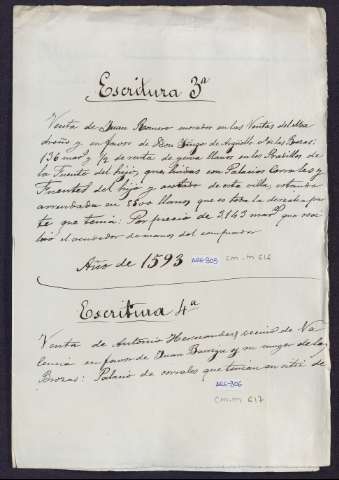 Escritura 3ª
Venta de Juan Romero morador en las Ventas del Ma
droño y en favor de Don Diego de Argüello de las Brozas:
136 marˢ y 1/2 de renta de yerva llanos en los Pradillos de
la Fuente del hijo, que lindas con Palacios Corrales y
Fuentes del hijo y estado de esta villa, estando
arrendada en 5600 llanos que es toda la derecha par
te que tenia: Por precio de 3143 marˢ que reci
bió el vendedor de manos del comprador
Año de 1593 ARG-305 CM.M 616
Escritura 4ª
Venta de Antonio Hernandez vecino de Va
lencia en favor de Juan y su muger de las
Brozas: Palacio de corrales que tenian en sitio de
ARG-306
CM.M 617